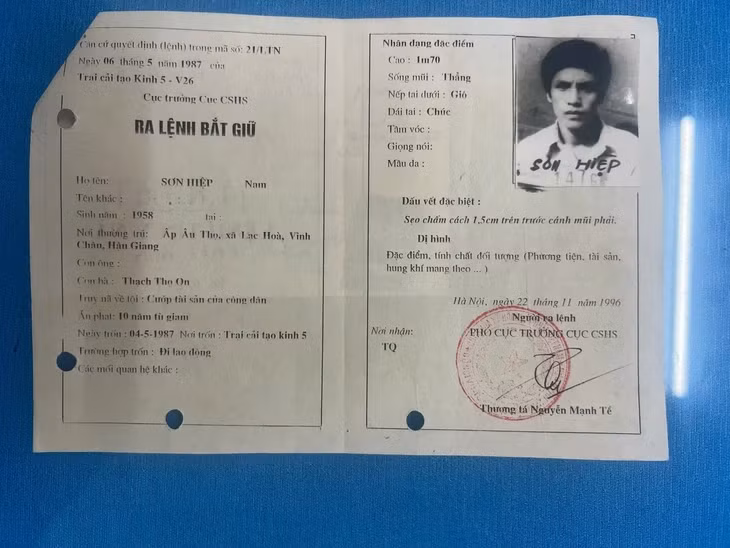 Căn cứ quyết định (lệnh) trong mã số: 21/LTN
Ngày 06 tháng 5 năm 1987 của
Trại cải tạo Kinh 5 - V26
Cục trưởng Cục CSHS
RA LỆNH BẮT GIỮ
Họ tên: SƠN HIỆP Nam
Tên khác :
Sinh năm : 1958 tại :
Nơi thường trú: Ấp Âu Thọ, xã Lạc Hoà, Vĩnh
Châu, Hậu Giang
Con ông :
Con bà : Thạch Thọ On
Truy nã về tội : Cướp tài sản của công dân
Án phạt: 10 năm tù giam
Ngày trốn : 04-5-1987 Nơi trốn : Trại cải tạo kinh 5
Trường hợp trốn : Đi lao động
Các mối quan hệ khác :
Nhân dạng đặc điểm
Cao : 1m70
Sống mũi : Thẳng
Nếp tai dưới : Giô
Dái tai : Chúc
Tầm vóc :
Giọng nói:
Màu da :
SƠN HIỆP
Dấu vết đặc biệt :
Sẹo chấm cách 1,5cm trên trước cánh mũi phải.
Dị hình
Đặc điểm, tính chất đối tượng (Phương tiện, tài sản,
hung khí mang theo ... )
Hà Nội, ngày 22 tháng 11 năm 1996
Người ra lệnh
Nơi nhận:
PHÓ CỤC TRƯỞNG CỤC CSHS
TQ
Thượng tá Nguyễn Mạnh Tề